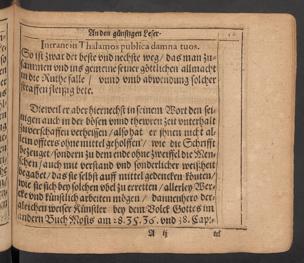 An den günstigen Leser.
Intrant in Thalamos publica damna tuos.
So ist zwar der beste vnd nechste weg / das man zu-
sammen vnd ins gemeine seiner göttlichen allmacht
in die Ruthe falle / vnnd vmb abwendung solcher
straffen fleissig bete.
Dieweil er aber hiernebst in seinem Wort den sei-
nigen auch in der bösen vnnd thewren zeit vnterhalt
zuverschaffen verheissen / also hat er ihnen nicht al-
lein offters ohne mittel geholffen / wie die Schrifft
bezeuget / sondern zu dem ende ohne zweiffel die Men-
schen / auch mit verstand vnd sonderlicher weißheit
begabet / das sie selbst auff mittel gedencken könten /
wie sie sich bey solchen vbel zu erretten / allerley Wer-
cke vnd künstlich arbeiten mögen / dannenhero der-
gleichen weiser Künstler bey dem Volck Gottes im
andern Buch Mosis am 28. 35. 36. vnd 38. Cap.
A ij